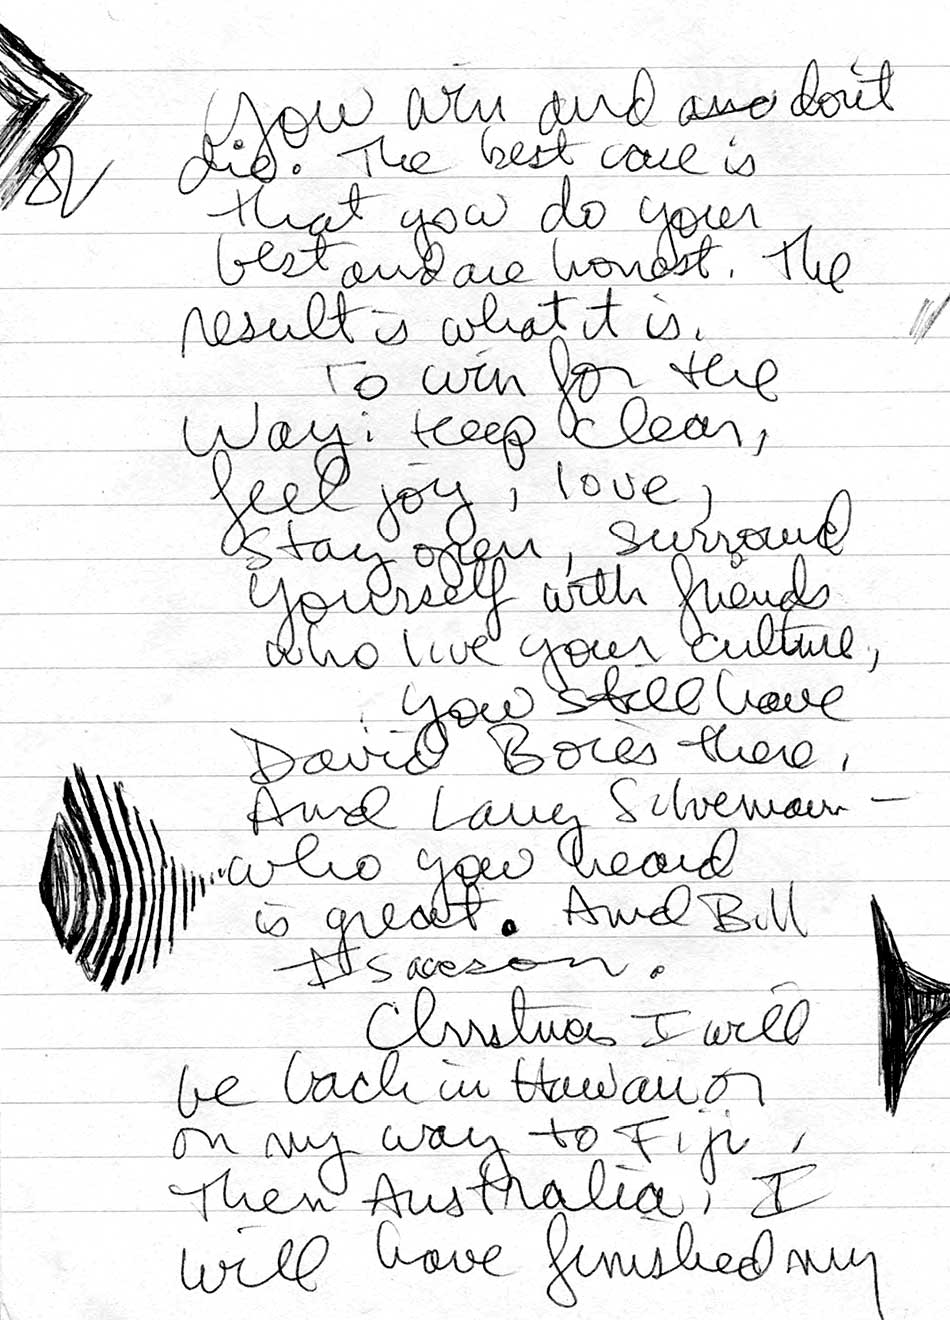 you win and don't
die. The best case is
that you do your
best and are honest. The
result is what it is.
To win for the
Way: Keep clear,
feel joy, love,
stay open, surround
yourself with friends
who live your culture,
you still have
David Boies there,
And Larry Silverman –
who you heard
is great. And Bill
Isaacson.
Christmas I will
be back in Hawaii or
on my way to Fiji,
Then Australia, I
will have finished my